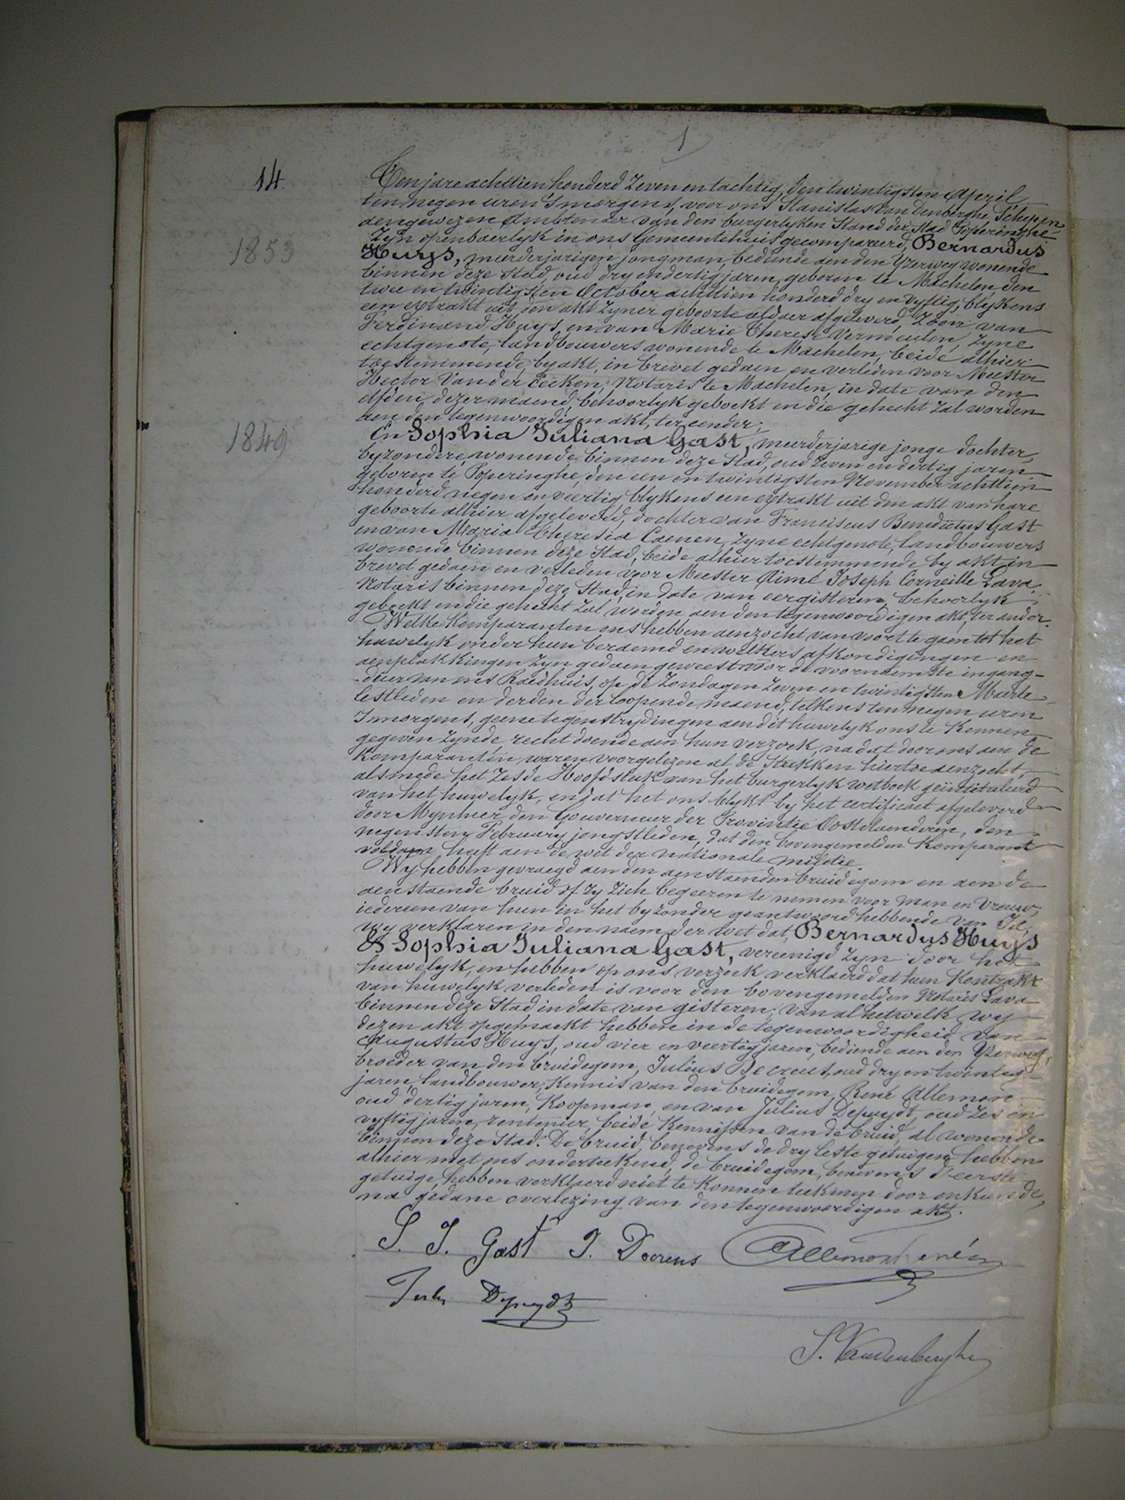 1
14
Ten jare achttien honderd zeven en tachtig, den twintigsten April
ten negen uren 's morgens, voor ons Stanislas Van Denberghe, Schepen
aengewezen Ambtenaer van den burgerlyken Stand der Stad Poperinghe
zyn openbaerlyk in ons Gemeentehuis gecompareerd, Bernardus
1853
Huys, meerderjarigen jongman, bediende aen den Yzerweg wonende
binnen deze stad, oud dry en dertig jaren, geboren te Machelen, den
twee en twintigsten October achttien honderd dry en vyftig, blykens
een extrakt uit den akt zyner geboorte aldaer afgeleverd, zoon van
Ferdinand Huys, en van Marie Therese Vermeulen, zyne
echtgenote, landbouwers wonende te Machelen, beide alhier
toestemmende, by akt, in brevet gedaen en verleden voor Meester
Hector Van der Eecken, Notaris te Machelen, in date van den
elfden dezer maend, behoorlyk geboekt en die gehecht zal worden
aen den tegenwoordigen akt, ter eender;
1849
En Sophia Juliana Gast, meerderjarige jonge dochter,
byzondere wonende binnen deze Stad, oud zeven en dertig jaren
geboren te Poperinghe, den een en twintigsten November achttien
honderd negen en veertig blykens een extrakt uit den akt van hare
geboorte alhier afgeleverd, dochter van Franciscus Benedictus Gast
en van Maria Theresia Coenen, zyne echtgenote, landbouwers
wonende binnen deze Stad, beide alhier toestemmende by akt in
brevet gedaen en verleden voor Meester Aimé Joseph Corneille Lava,
Notaris binnen deze Stad, in date van eergisteren behoorlyk
geboekt en die gehecht zal worden aen den tegenwoordigen akt, ter ander.
Welke Komparanten ons hebben aenzocht van voort te gaen tot het
huwelyk onder hun beraemd en welkers afkondigingen en
aenplakkingen zyn gedaen geweest voor de voornaemste ingang-
-deur van ons Raedhuis, op de Zondagen zeven en twintigsten Maerte
lestleden en derden der loopende maend, telkens ten negen uren
's morgens, geene tegenstrydingen aen dit huwelyk ons te kennen
gegeven zynde recht doende aen hun verzoek, na dat door ons aen de
Komparanten waren voorgelezen al de Stukken hiertoe aenzocht,
alsmede het zesde Hoofdstuk van het burgerlyk wetboek geïntituleerd
van het huwelyk, en dat het ons blykt by het certificaet afgeleverd
door Mynheer den Gouverneur der Provintie Oostvlaenderen, den
negensten February jongstleden, dat den bovengemelden Komparant
voldaen heeft aen de wet der nationale militie.
Wy hebben gevraegd aen den aenstaenden bruidegom en aen de
aenstaende bruid of zy zich begeeren te nemen voor man en vrouw,
iedereen van hun in het byzonder geantwoord hebbende van Ja,
wy verklaren in den naem der wet dat Bernardus Huys
& Sophia Juliana Gast, vereenigd zyn door het
huwelyk, en hebben op ons verzoek verklaerd dat hun Kontrakt
van huwelyk verleden is voor den bovengemelden Notaris Lava
binnen deze Stad in date van gisteren, van al hetwelk wy
dezen akt opgemaekt hebben in de tegenwoordigheid van
Augustus Huys, oud vier en veertig jaren, bediende aen den Yzerweg,
broeder van den bruidegom, Julius oud dry en twintig
jaren, landbouwer, Kennis van den bruidegom, René Allemon
oud dertig jaren, Koopman, en van Julius Depuydt, oud zes en
vyftig jaren, rentenier, beide Kennissen van de bruid, al wonende
binnen deze Stad. De bruid, benevens de dry leste getuigen hebben
alhier met ons onderteekend, de bruidegom, benevens d'eerste
getuige, hebben verklaerd niet te konnen teekenen door onkunde,
na gedane overlezing van den tegenwoordigen akt.
S. J. Gast
Depuydt
S. Vandenberghe